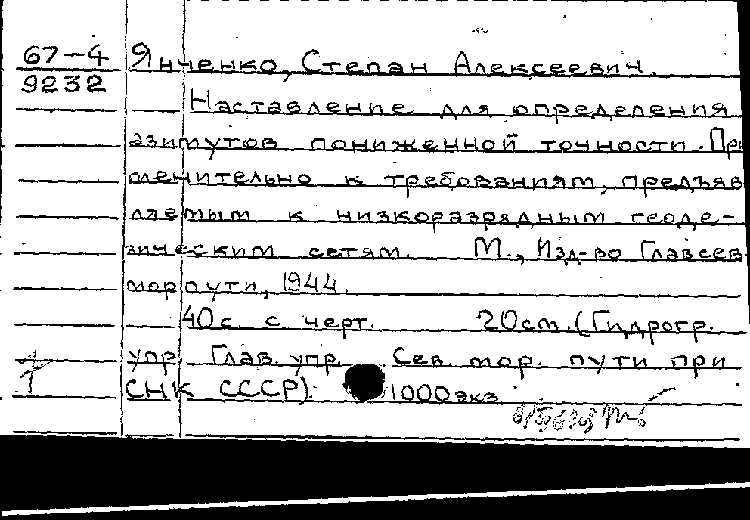 67-4 Янченко, Степан Алексеевич.
9232
Наставление для определения
азимутов пониженной точности. При
менительно к требованиям, предъяв
ляемым к низкоразрядным геоде-
зическим сетям. М., Изд-во Главсев
морпути, 1944.
40с с черт. 20см. (Гидрогр.
упр. Глав. упр. Сев. мор. пути при
СНК СССР). 1000экз